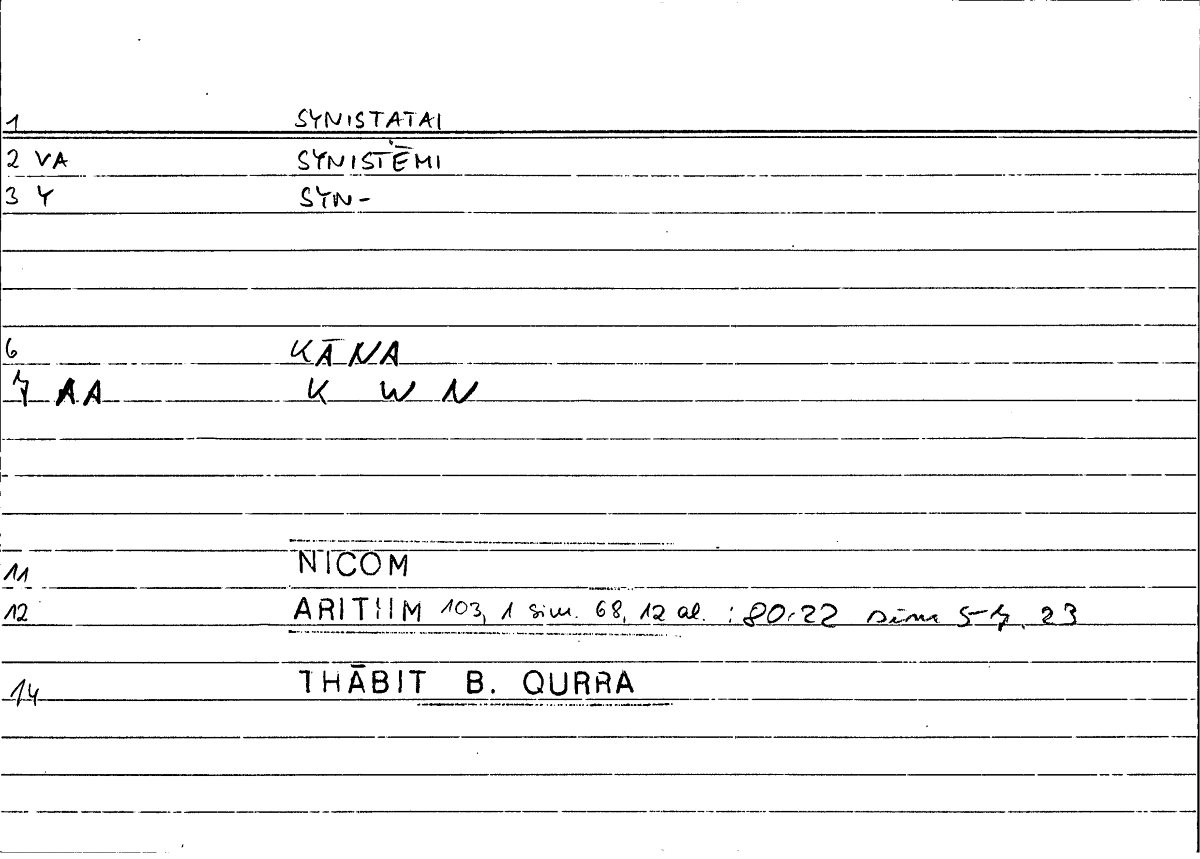 1 SYNISTATAI
2 VA SYNISTĒMI
3 Y SYN-
6 KĀNA
7 AA K W N
11 NICOM
12 ARITHM 103, 1 sim. 68, 12 al. : 80,22 sim 5-7. 23
14 THĀBIT B. QURRA